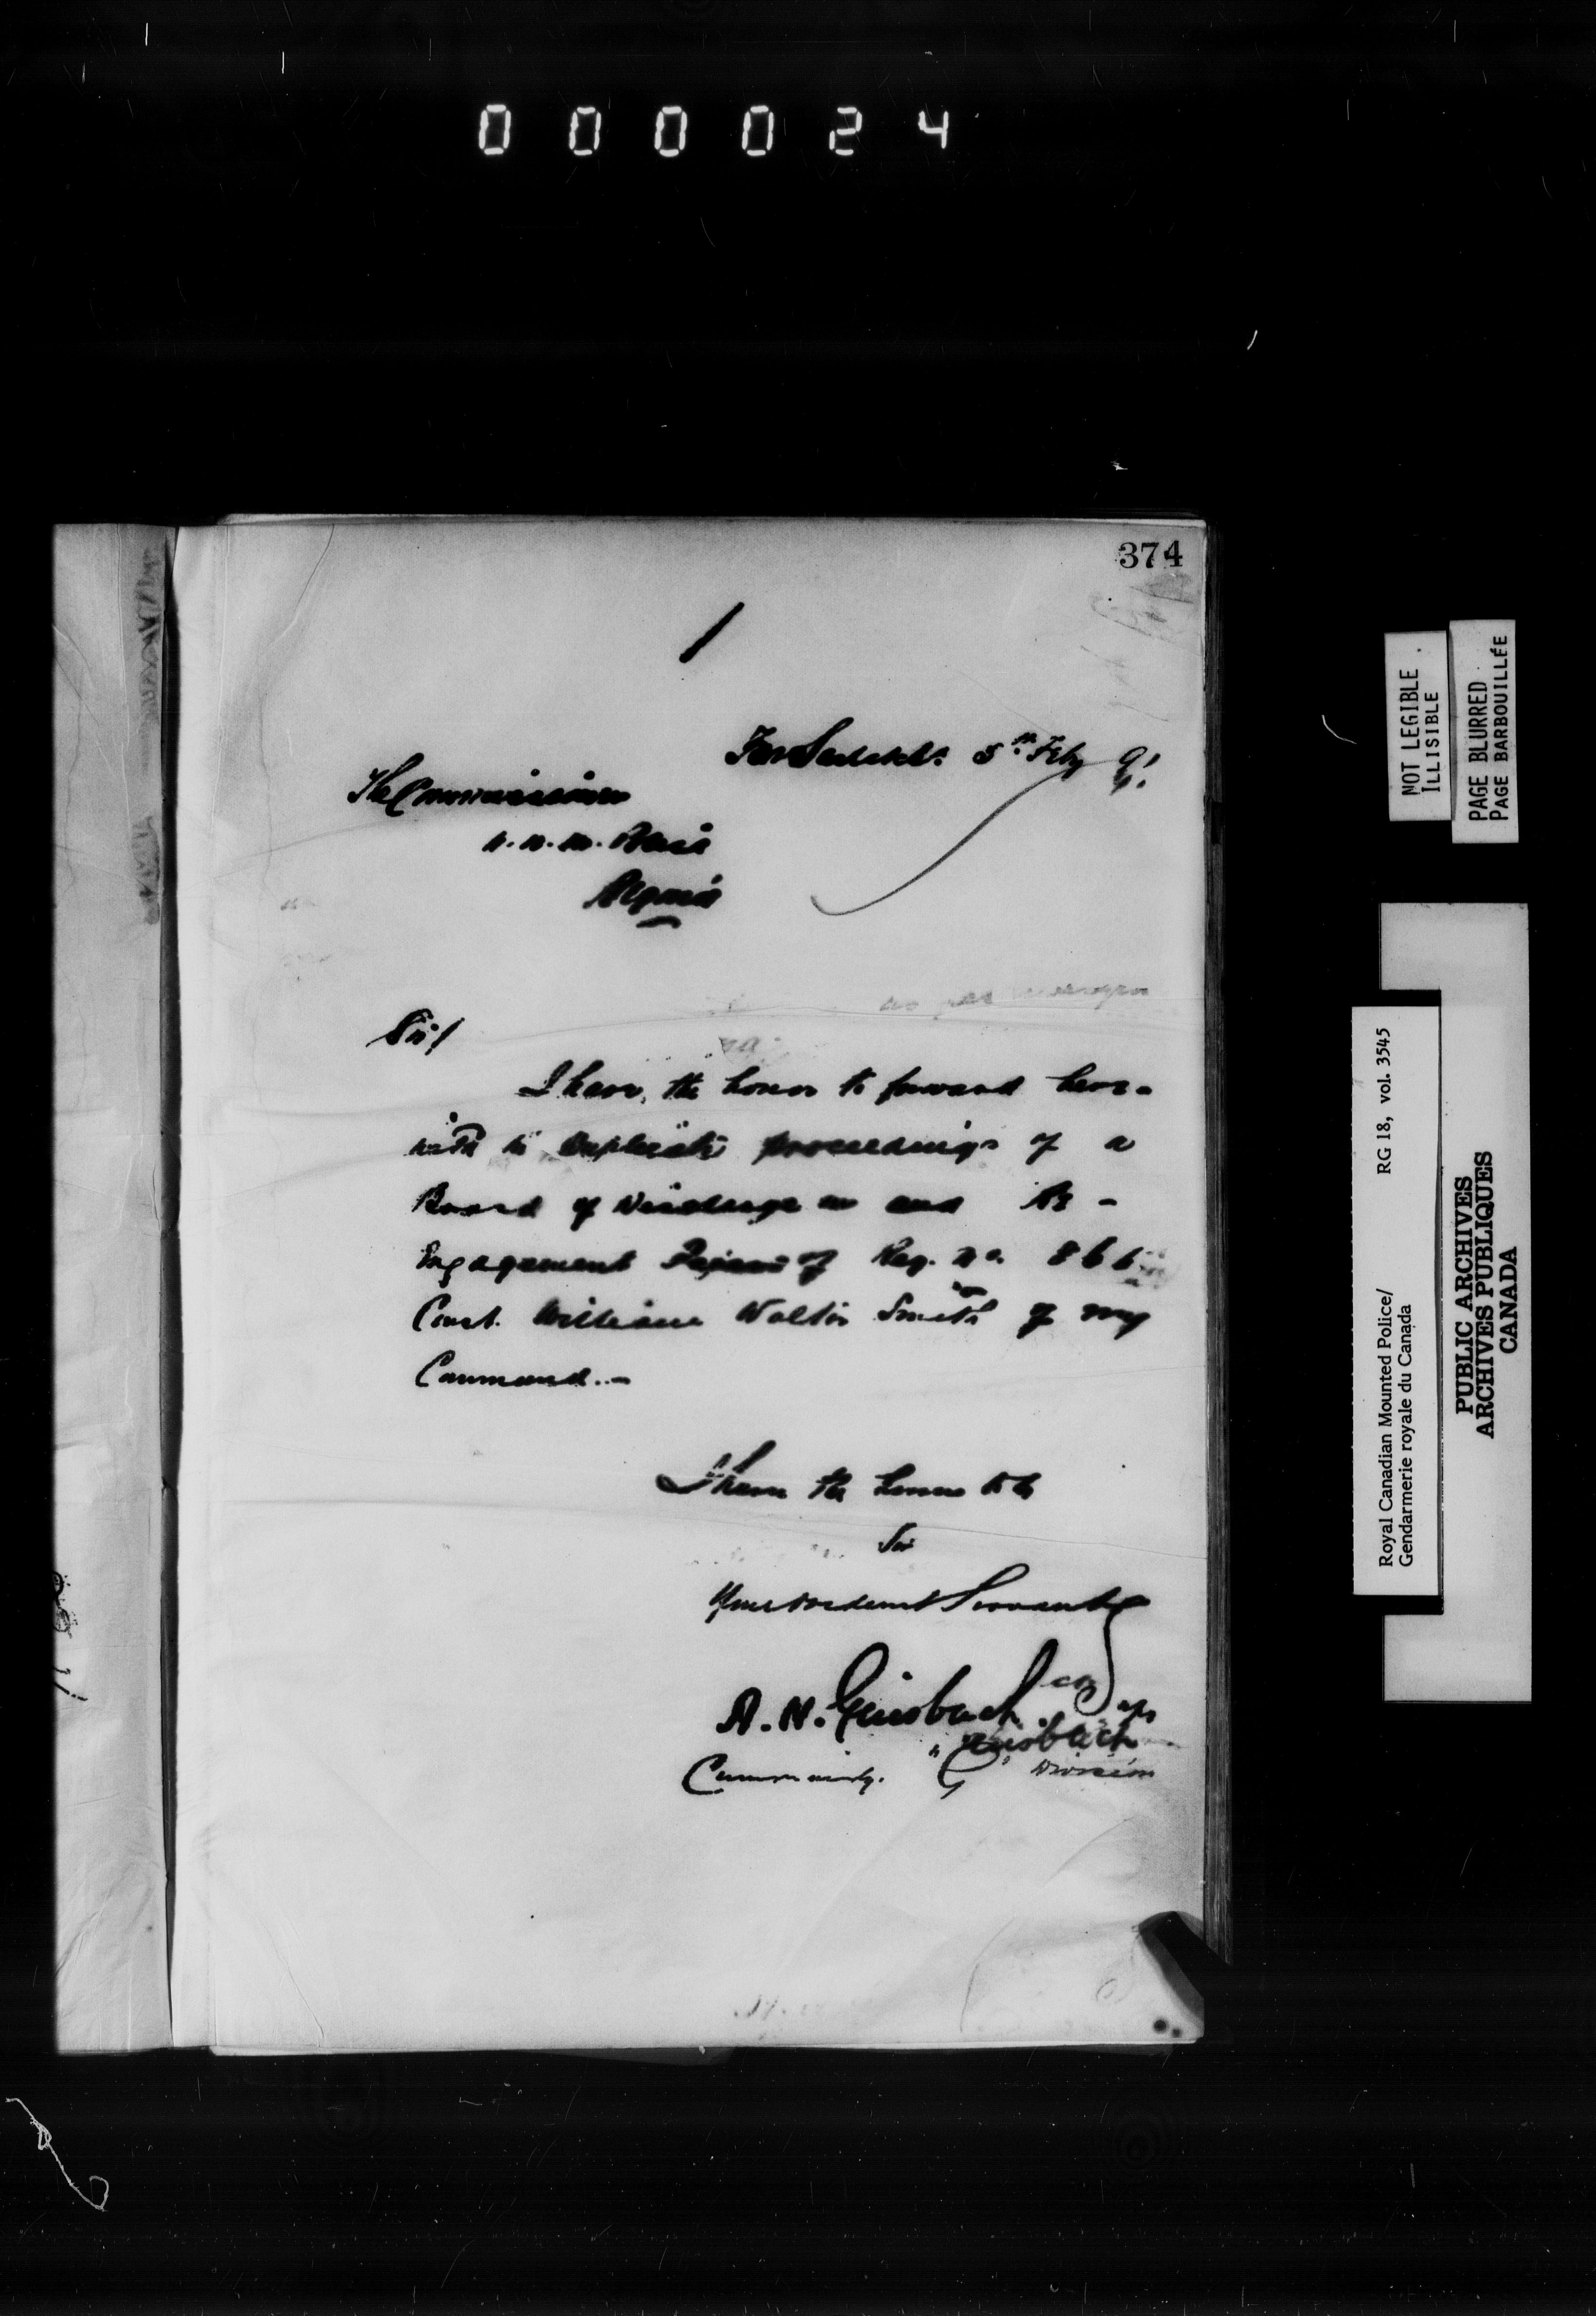 000024
374
Fort Saskn. 5th Feby 91.
The Commissioner
N.W.M. Police
Regina
Sir!
I have the honor to forward here-
with in Duplicate proceedings of a
Board of Discharge and Re-
Engagement Papers of Reg. No. 866
Const. William Walter Smith of my
Command.-
I have the honor to be
Sir
Your obedient Servant
A. H. Griesbach
Griesbach
Commandg. "G" Division
NOT LEGIBLE
ILLISIBLE
PAGE BLURRED
PAGE BARBOUILLÉE
Royal Canadian Mounted Police/
Gendarmerie royale du Canada
RG 18, vol. 3545
PUBLIC ARCHIVES
ARCHIVES PUBLIQUES
CANADA